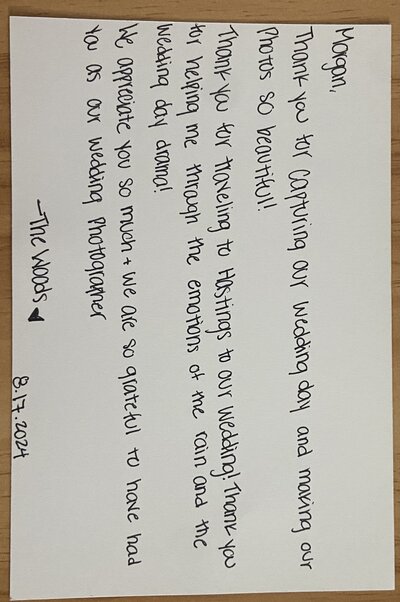 Morgan,
Thank you for capturing our wedding day and making our
Photos so beautiful!
Thank you for traveling to Hastings to our wedding! Thank you
for helping me through the emotions of the rain and the
wedding day drama!
We appreciate you so much + we are so grateful to have had
you as our wedding photographer
-The Woods ♥
8.17.2024